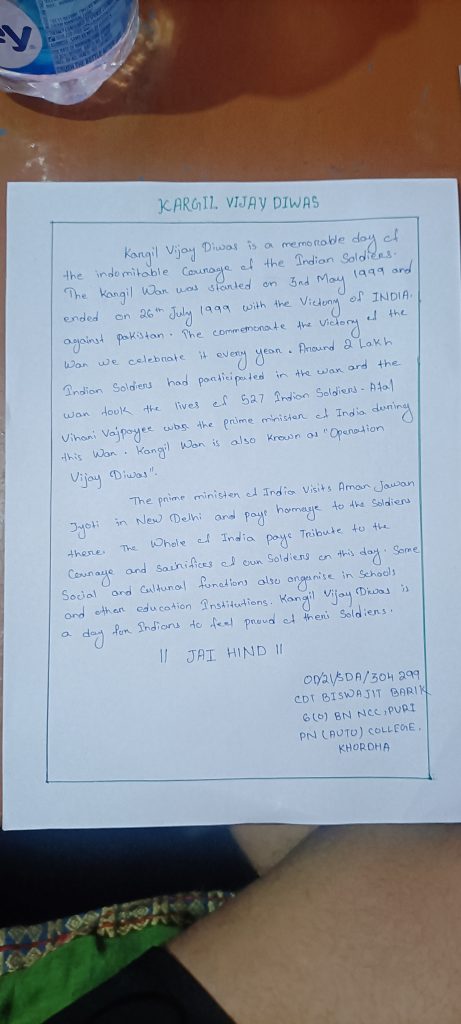 KARGIL VIJAY DIWAS
Kargil Vijay Diwas is a memorable day of
the indomitable Courage of the Indian Soldiers.
The Kargil War was started on 3rd May 1999 and
ended on 26th July 1999 with the Victory of INDIA.
against pakistan. The commemorate the Victory of the
War we celebrate it every year. Around 2 Lakh
Indian Soldiers had participated in the war and the
war took the lives of 527 Indian Soldiers. Atal
Vihari Vajpayee was the prime minister of India during
this War. Kargil War is also known as "Operation
Vijay Diwas".
The prime minister of India Visits Amar Jawan
Jyoti in New Delhi and pays homage to the Soldiers
there. The Whole of India pays Tribute to the
Courage and sacrifices of our Soldiers on this day. Some
Social and Cultural functions also organise in Schools
and other education Institutions. Kargil Vijay Diwas is
a day for Indians to feel proud of their Soldiers.
|| JAI HIND ||
OD/21/SDA/304 299
CDT BISWAJIT BARIK
6(O) BN NCC, PURI
PN (AUTO) COLLEGE,
KHORDHA